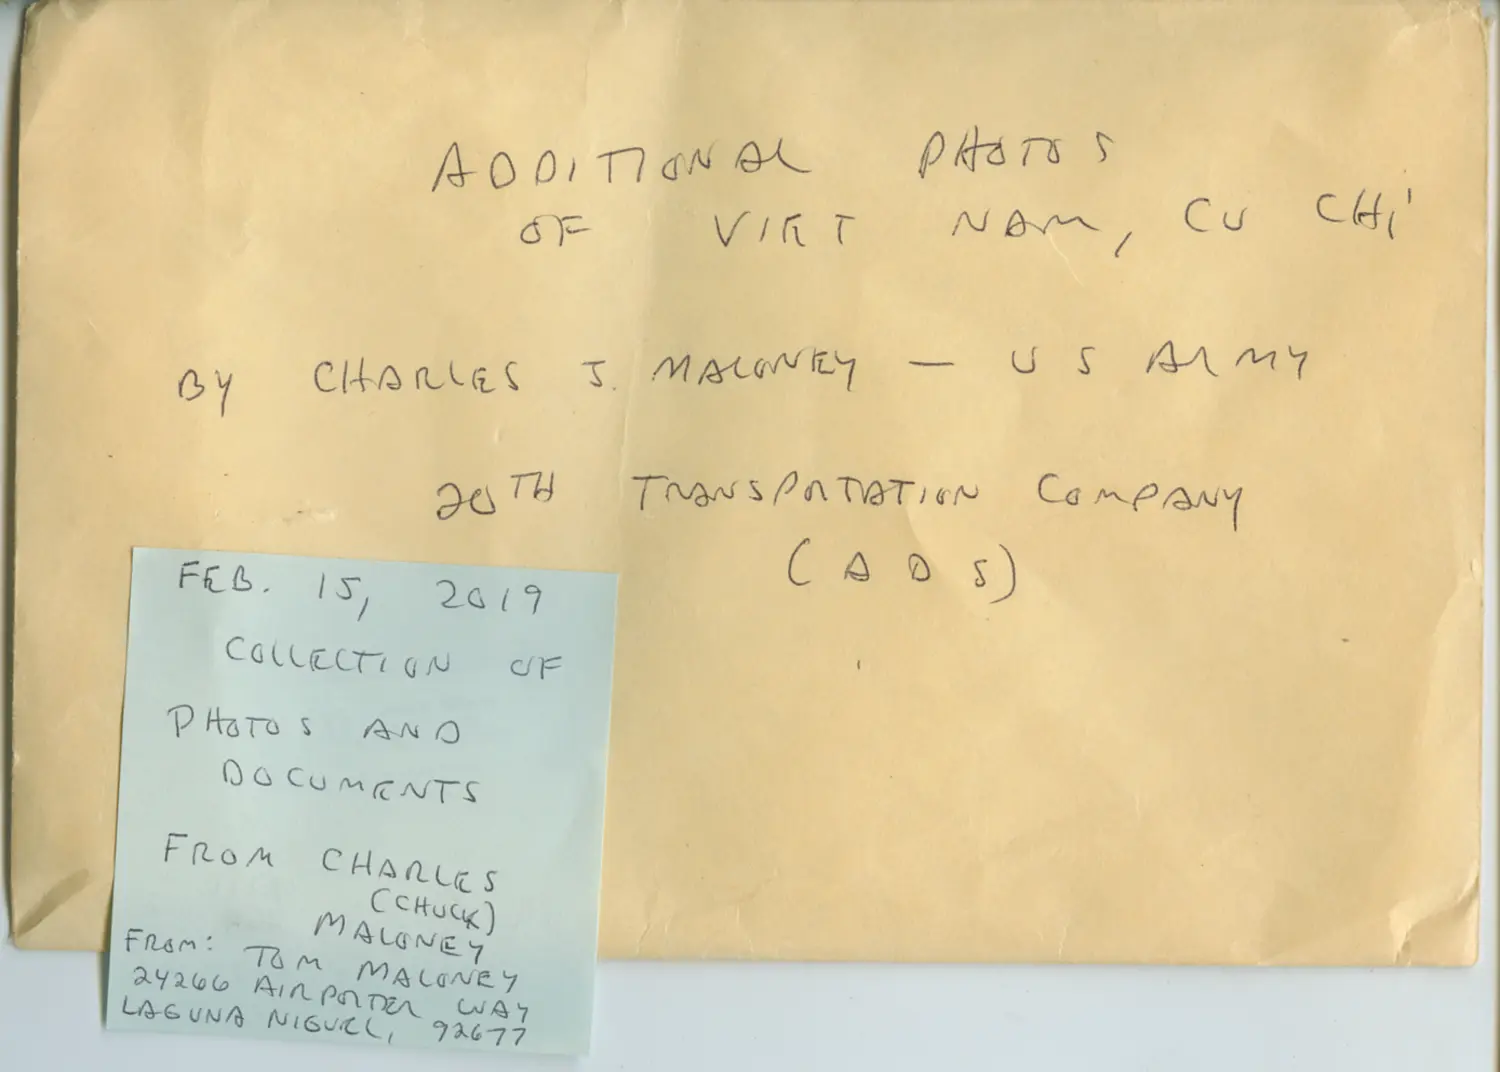 ADDITIONAL PHOTOS
OF VIET NAM, CU CHI
BY CHARLES J. MALONEY — US ARMY
20TH TRANSPORTATION COMPANY
(ADS)
FEB. 15, 2019
COLLECTION OF
PHOTOS AND
DOCUMENTS
FROM CHARLES
(CHUCK)
MALONEY
FROM: TOM MALONEY
24266 AIRPORTER WAY
LAGUNA NIGUEL, 92677